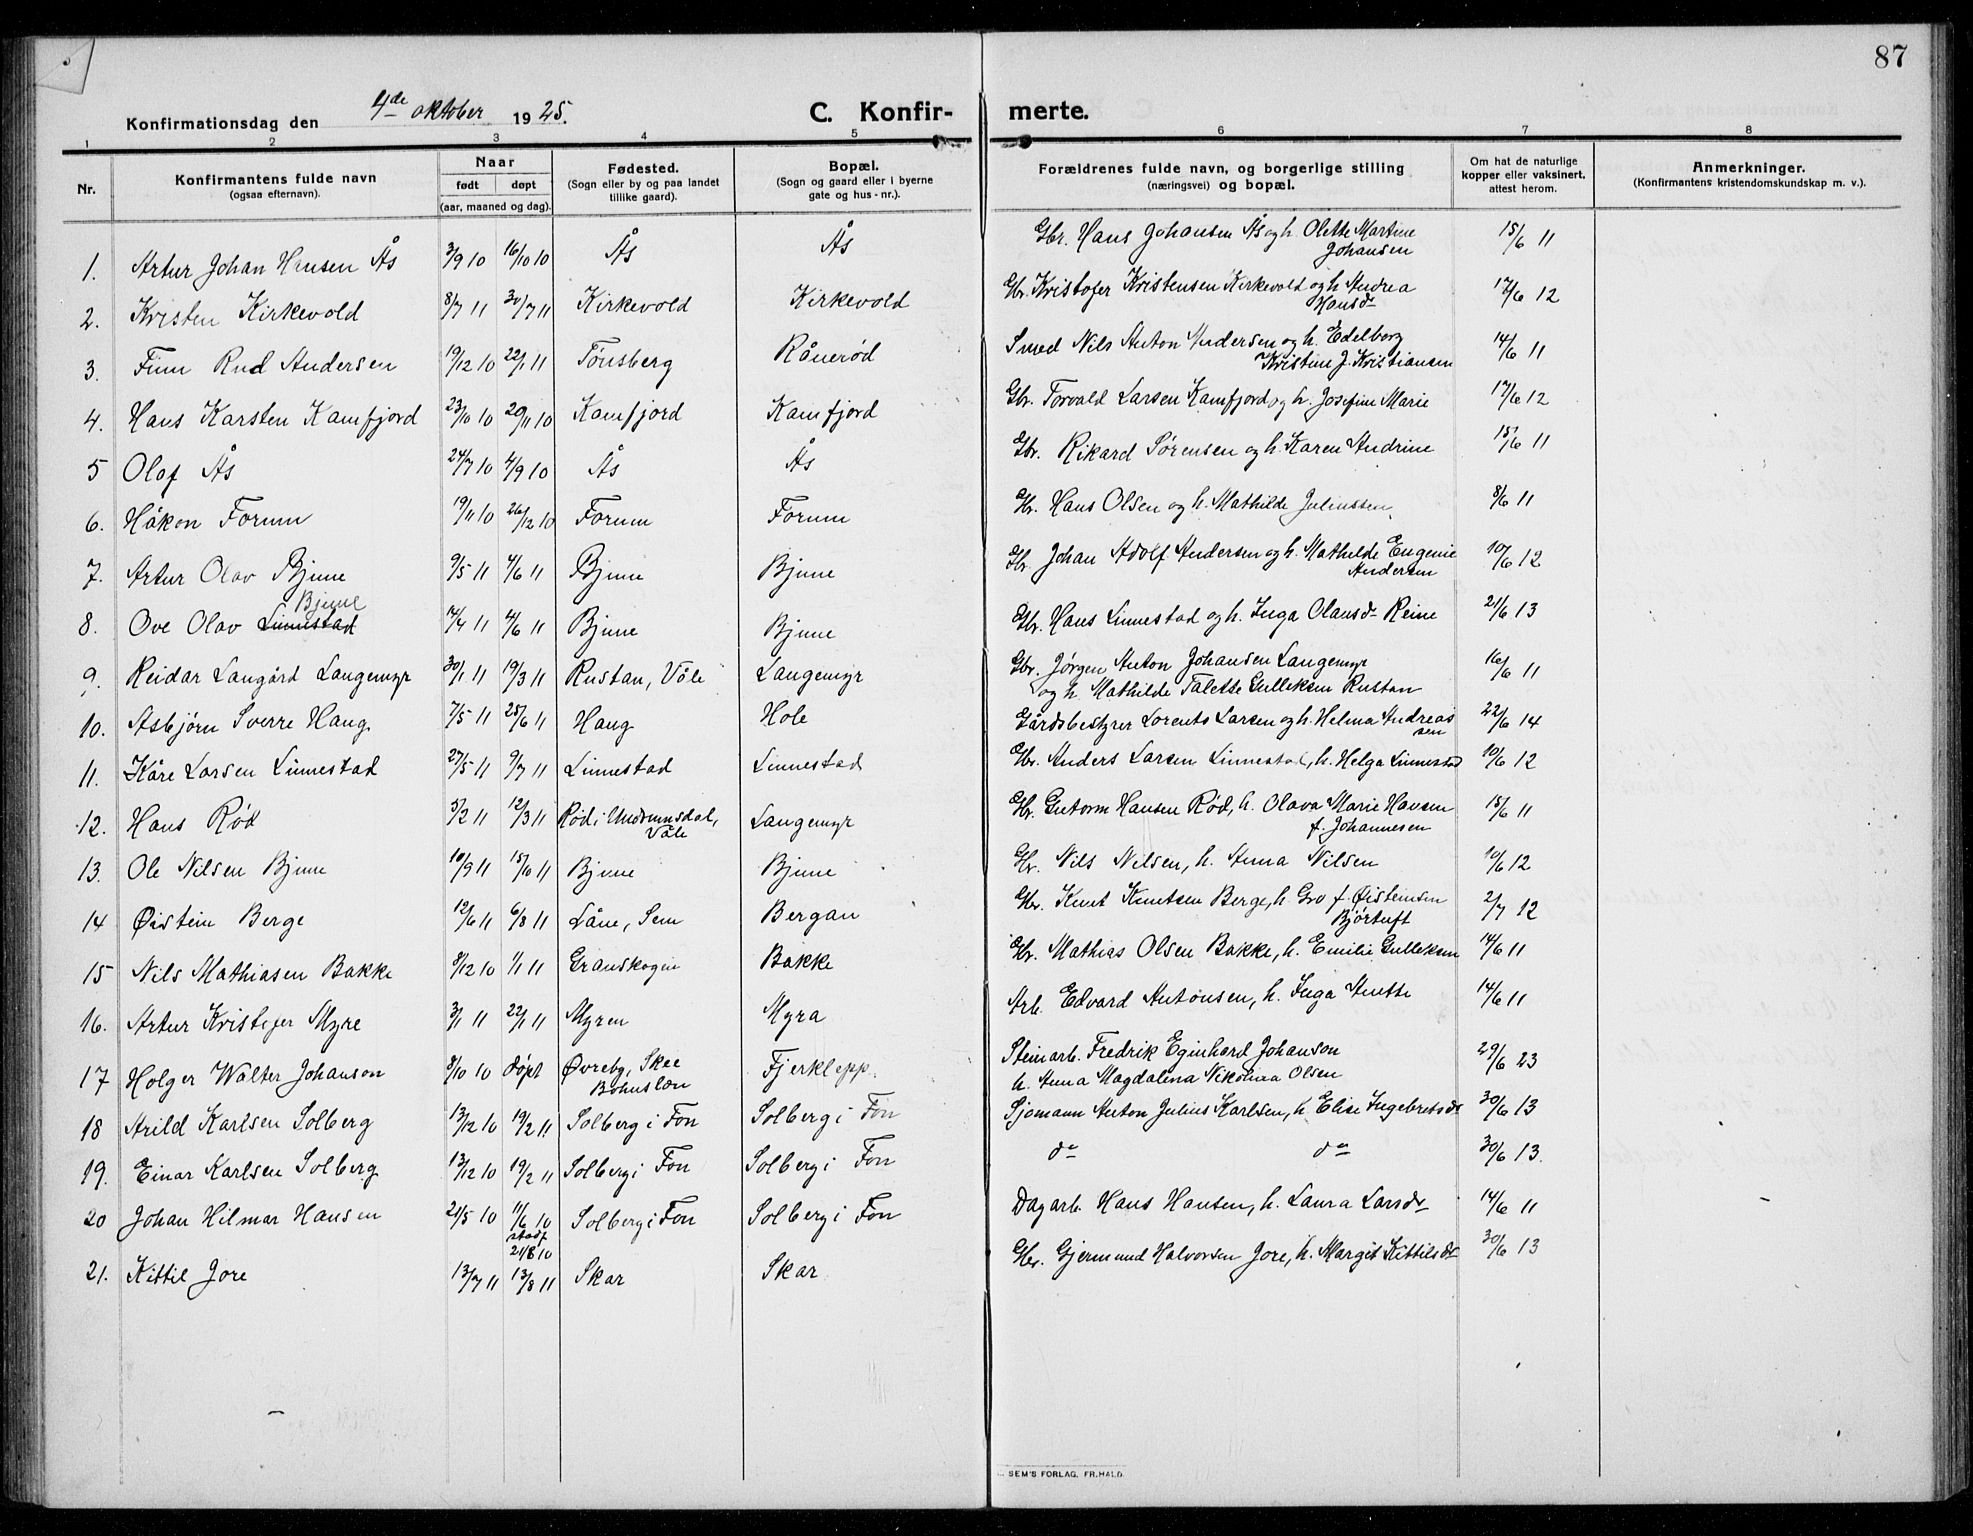 87
Konfirmationsdag den 4de oktober 1925.
C. Konfir- merte.
1 2 3 4 5 6 7 8
Nr. Konfirmantens fulde navn (ogsaa efternavn). Naar født døpt (aar, maaned og dag). Fødested. (Sogn eller by og paa landet tillike gaard). Bopæl. (Sogn og gaard eller i byerne gate og hus-nr.). Forældrenes fulde navn, og borgerlige stilling (næringsvei) og bopæl. Om hat de naturlige kopper eller vaksinert, attest herom. Anmerkninger. (Konfirmantens kristendomskundskap m. v.).
1. Artur Johan Hansen Ås 3/9 10 16/10 10 Ås Ås Gbr. Hans Johansen Ås og h. Olette Martine Johansen 15/6 11
2. Kristen Kirkevold 8/7 11 30/7 11 Kirkevold Kirkevold Gbr. Kristofer Kristensen Kirkevold og h Andrea Hansdr 17/6 12
3. Finn Rud Andersen 19/12 10 22/1 11 Tønsberg Rånerød Smed Nils Anton Andersen og h. Edelborg Kristine J. Kristiansen 14/6 11
4. Hans Karsten Kamfjord 23/10 10 20/11 10 Kamfjord Kamfjord Gbr. Torvald Larsen Kamfjord og h. Josefine Marie 17/6 12
5 Olaf Ås 24/7 10 4/9 10 Ås Ås Gbr. Rikard Sørensen og h. Karen Andrine 15/6 11
6. Håkon Forum 19/11 10 26/12 10 Forum Forum Gbr. Hans Olsen og h. Mathilde Juliussen 8/6 11
7. Artur Olav Bjune 9/5 11 4/6 11 Bjune Bjune Gbr Johan Adolf Andersen og h. Mathilde Eugenie Andersen 10/6 12
8. Ove Olav Linnestad Bjune 14/4 11 4/6 11 Bjune Bjune Gbr. Hans Linnestad og h. Inga Olausdr Reine 21/6 13
9. Reidar Langård Langemyr 30/1 11 19/3 11 Rustan, Våle Langemyr Gbr. Jørgen Anton Johansen Langemyr og h. Mathilde Talette Gulleksen Rustan 16/6 11
10. Asbjørn Sverre Haug 7/5 11 25/6 11 Haug Hole Gårdsbestyrer Lorents Larsen og h. Helma Andreassen 22/6 14
11. Kåre Larsen Linnestad 27/5 11 9/7 11 Linnestad Linnestad Gbr. Anders Larsen Linnestad, h. Helga Linnestad 10/6 12
12. Hans Rød 5/2 11 12/3 11 Rød i Undrumsdal, Våle Langemyr Gbr. Gutorm Hansen Rød, h. Olava Marie Hansen f. Johannesen 15/6 11
13. Ole Nilsen Bjune 10/9 11 15/10 11 Bjune Bjune Gbr. Nils Nilsen, h. Anna Nilsen 10/6 12
14 Øistein Berge 12/6 11 6/8 11 Låne, Sem Bergan Gbr. Knut Knutsen Berge, h. Gro f. Øisteinsen Bjørtuft 2/7 12
15 Nils Mathiasen Bakke 8/12 10 1/1 11 Granskogen Bakke Gbr. Mathias Olsen Bakke, h. Emilie Gulleksen 14/6 11
16. Artur Kristofer Myre 3/1 11 22/1 11 Myren Myra Arb. Edvard Antonsen, h. Inga Anette 14/6 11
17 Holger Walter Johanson 8/10 10 døpt Øvreby, Skee Bohuslæn Fjerklepp. Steinarb. Fredrik Eginhard Johanson h. Anna Magdalina Nikolina Olsen 29/6 23
18 Arild Karlsen Solberg 13/12 10 19/2 11 Solberg i Fon Solberg i Fon Sjømann Anton Julius Karlsen, h Elise Ingebretsdr 30/6 13
19. Einar Karlsen Solberg 13/12 10 19/2 11 Solberg i Fon Solberg i Fon do do 30/6 13.
20 Johan Hilmar Hansen 21/5 10 11/6 10 stadf 21/8 10 Solberg i Fon Solberg i Fon Dagarb. Hans Hansen, h. Laura Larsdr 14/6 11
21. Kittil Jore 13/7 11 13/8 11 Skar Skar Gbr. Gjermund Halvorsen Jore, h. Margit Kittilsdr 30/6 13
SEM'S FORLAG, FR. HALD.